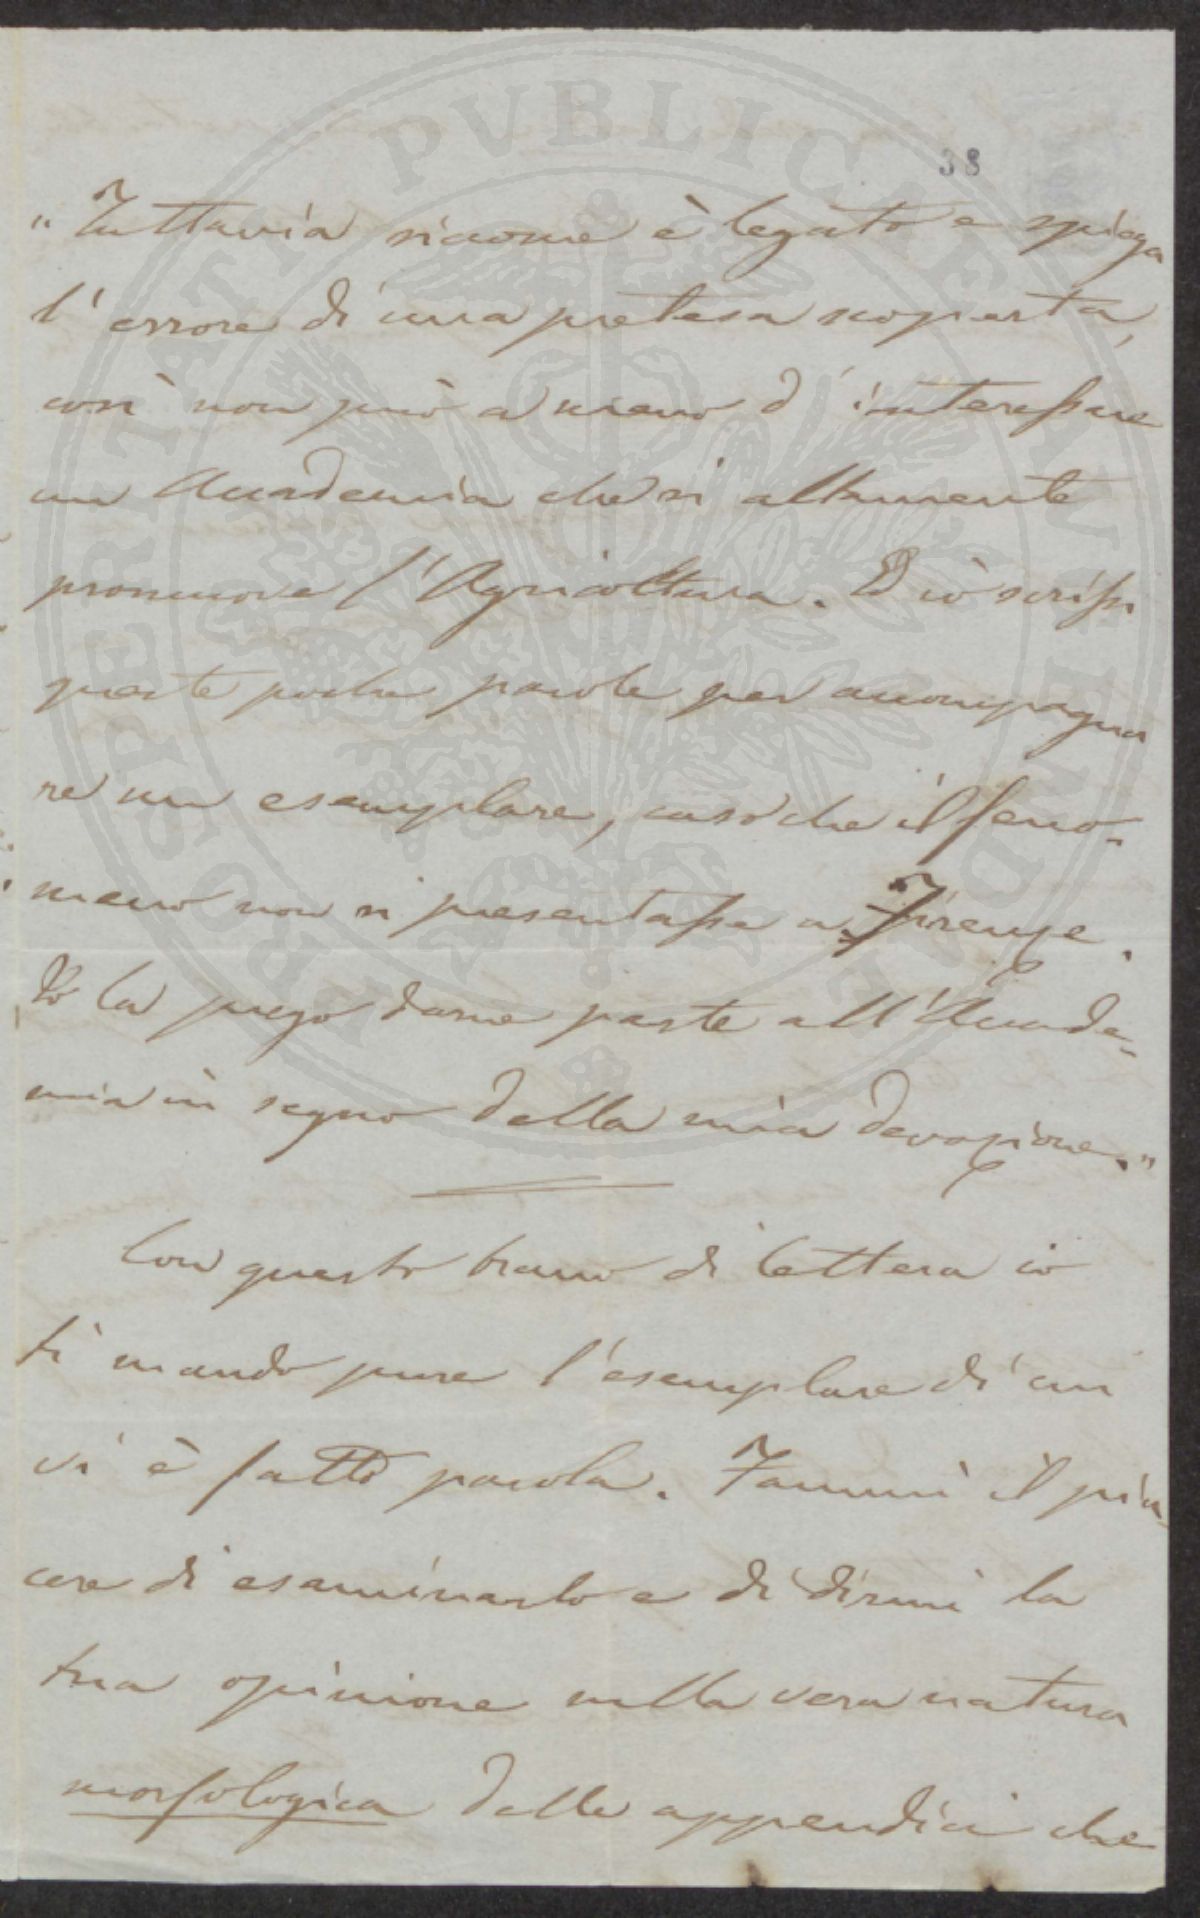 38
„Tuttavia siccome è legato e spiega
l'errore di una pretesa scoperta,
così non può a meno d'interessare
un Accademia che sì altamente
promuove l'Agricoltura. Perciò scrissi
queste poche parole per accompagna
re un esemplare, caso che il feno-
meno non si presentasse a Firenze.
La prego darne parte all'Accade-
mia in segno della mia devozione.„
Con questo brano di lettera io
ti mando pure l'esemplare di cui
vi è fatto parola. Fammi il pia-
cere di esaminarlo e di dirmi la
tua opinione sulla vera natura
morfologica delle appendici che
PVBLICAE
PROSPERITATI